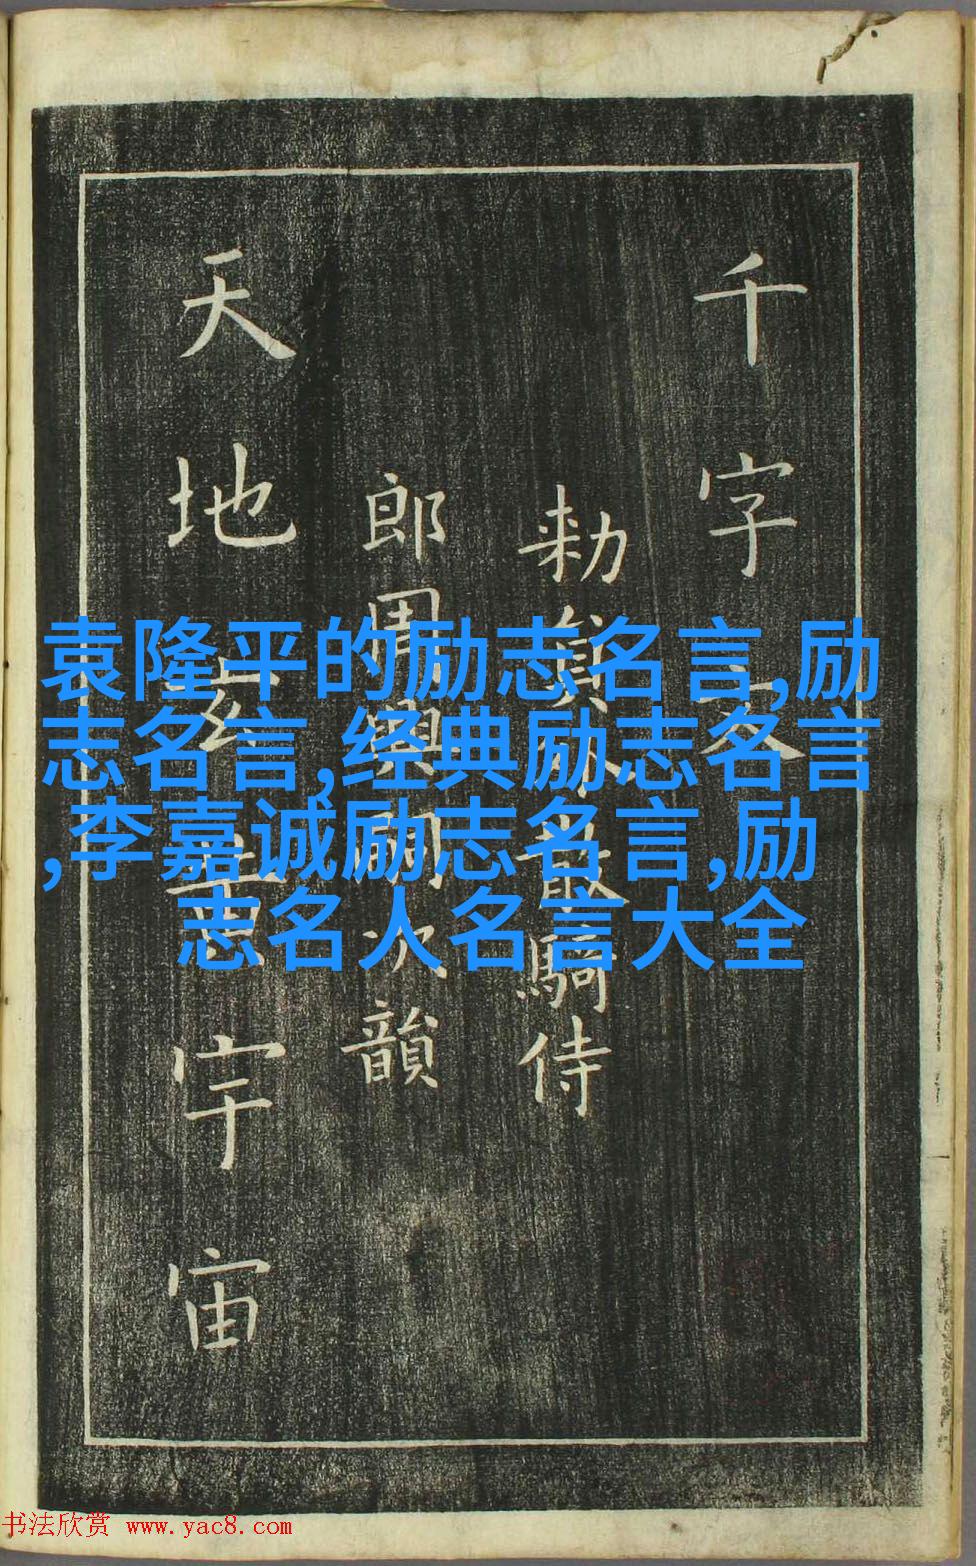 袁隆平的励志名言,励
志名言,经典励志名言
,李嘉诚励志名言,励
志名人名言大全
千字文
勑員外散騎侍
郎周興嗣次韻
天地玄黃宇宙
书法欣赏 www.yac8.com